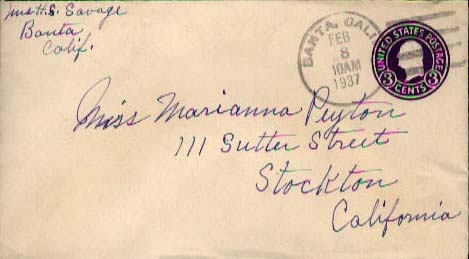 Mrs H.S. Savage
Banta,
Calif.
BANTA, CALIF
FEB
8
10AM
1937
UNITED STATES POSTAGE
3 CENTS 3
Miss Marianna Peyton
111 Sutter Street
Stockton
California